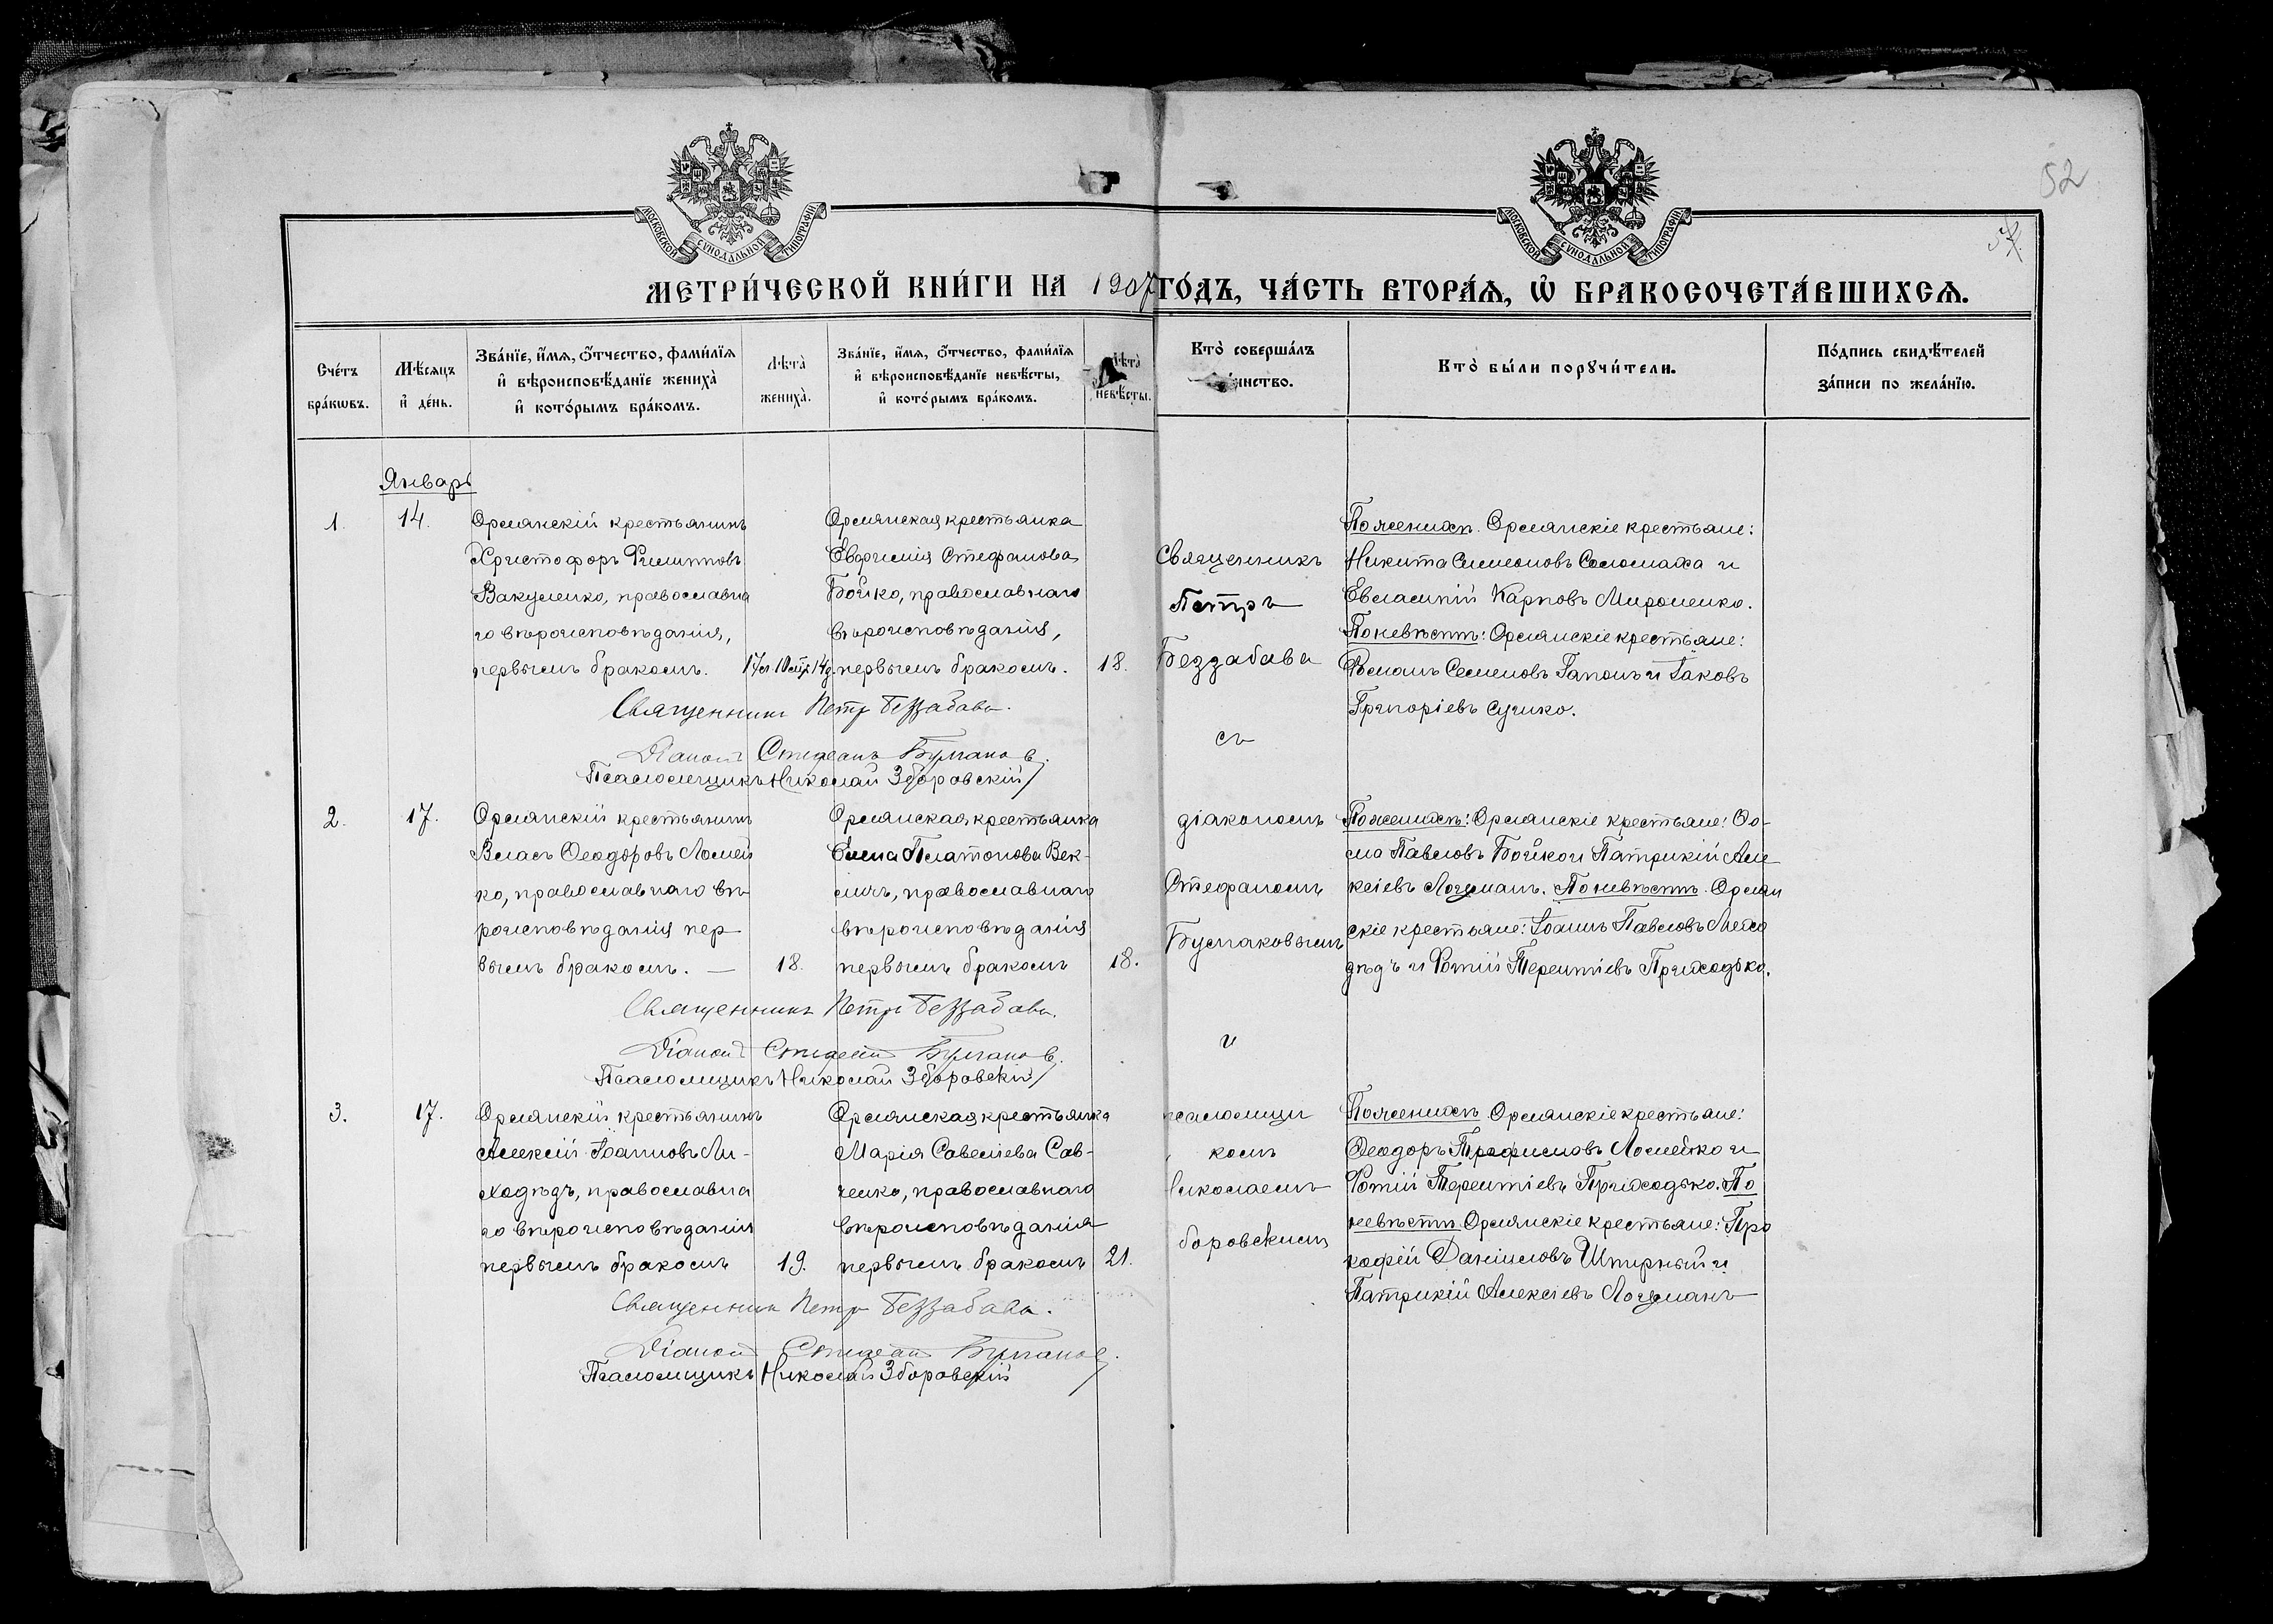 52
МОСКОВСКОЙ СѴНОДАЛЬНОЙ ТИПОГРАФІИ
МОСКОВСКОЙ СѴНОДАЛЬНОЙ ТИПОГРАФІИ
МЕТРИ́ЧЕСКОЙ КНИ́ГИ НА 1907 ГО́ДЪ, ЧА́СТЬ ВТОРА́Ѧ, Ѽ БРАКОСОЧЕТА́ВШИХСѦ.
Сче́тъ
бра́кѡвъ.
Мѣ́сяцъ
и҆ де́нь.
Зва́нїе, и҆́мѧ, ѻ҆́тчество, фами́лїѧ
и҆ вѣроисповѣ́данїе жениха̀
и҆ кото́рымъ бра́комъ.
Лѣ́та̀
жениха̀.
Зва́нїе, и҆́мѧ, ѻ҆́тчество, фами́лїѧ
и҆ вѣроисповѣ́данїе невѣ́сты,
и҆ кото́рымъ бра́комъ.
невѣ́сты.
Кто̀ соверша́лъ
Кто̀ бы́ли порꙋчи́тели.
По́дпись свидѣ́телей
за́писи по жела́нїю.
Январь
1.
14.
Орлянскій крестьянинъ
Христофоръ Филипповъ
Вакуленко, православна
го вѣроисповѣданія,
первымъ бракомъ.
17 л. 10 мѣс. 14 д.
Орлянская крестьянка
Евфимія Стефанова
Бойко, православнаго
вѣроисповѣданія,
первымъ бракомъ.
18.
Священникъ
Петръ
Беззабава
съ
діакономъ
Стефаномъ
Булгаковымъ
и
псаломщи
комъ
Николаемъ
Зборовскимъ
По женихѣ. Орлянскіе крестьяне:
Никита Симеоновъ Соломаха и
Евлампій Карповъ Мироненко.
По невѣстѣ: Орлянскіе крестьяне:
Романъ Семеновъ Гапонъ и Іаковъ
Григоріевъ Сушко.
Священникъ Петръ Беззабава.
Діаконъ Стефанъ Булгаковъ.
Псаломщикъ Николай Зборовскій
2.
17.
Орлянскій крестьянинъ
Власъ Ѳеодоровъ Ломей
ко, православнаго вѣ-
роисповѣданія пер
вымъ бракомъ. —
18.
Орлянская крестьянка
Елена Платонова Век-
личъ, православнаго
вѣроисповѣданія
первымъ бракомъ
18.
По женихѣ: Орлянскіе крестьяне: Ѳо-
ма Павловъ Бойко и Патрикій Але
ксіевъ Лоцманъ. По невѣстѣ. Орлян
скіе крестьяне: Іоаннъ Павловъ Лихо
дѣдъ и Фотій Терентіевъ Приходько.
Священникъ Петръ Беззабава.
Діаконъ Стефанъ Булгаковъ.
Псаломщикъ Николай Зборовскій
3.
17.
Орлянскій крестьянинъ
Алексій Іоанновъ Ли-
ходѣдъ, православна
го вѣроисповѣданія
первымъ бракомъ
19.
Орлянская крестьянка
Марія Савеліева Сав-
ченко, православнаго
вѣроисповѣданія
первымъ бракомъ
21.
По женихѣ. Орлянскіе крестьяне:
Ѳеодоръ Трофимовъ Ломейко и
Фотій Терентіевъ Приходько. По
невѣстѣ. Орлянскіе крестьяне: Про
кофій Даніиловъ Штирный и
Патрикій Алексіевъ Лоцманъ
Священникъ Петръ Беззабава.
Діаконъ Стефанъ Булгаковъ.
Псаломщикъ Николай Зборовскій